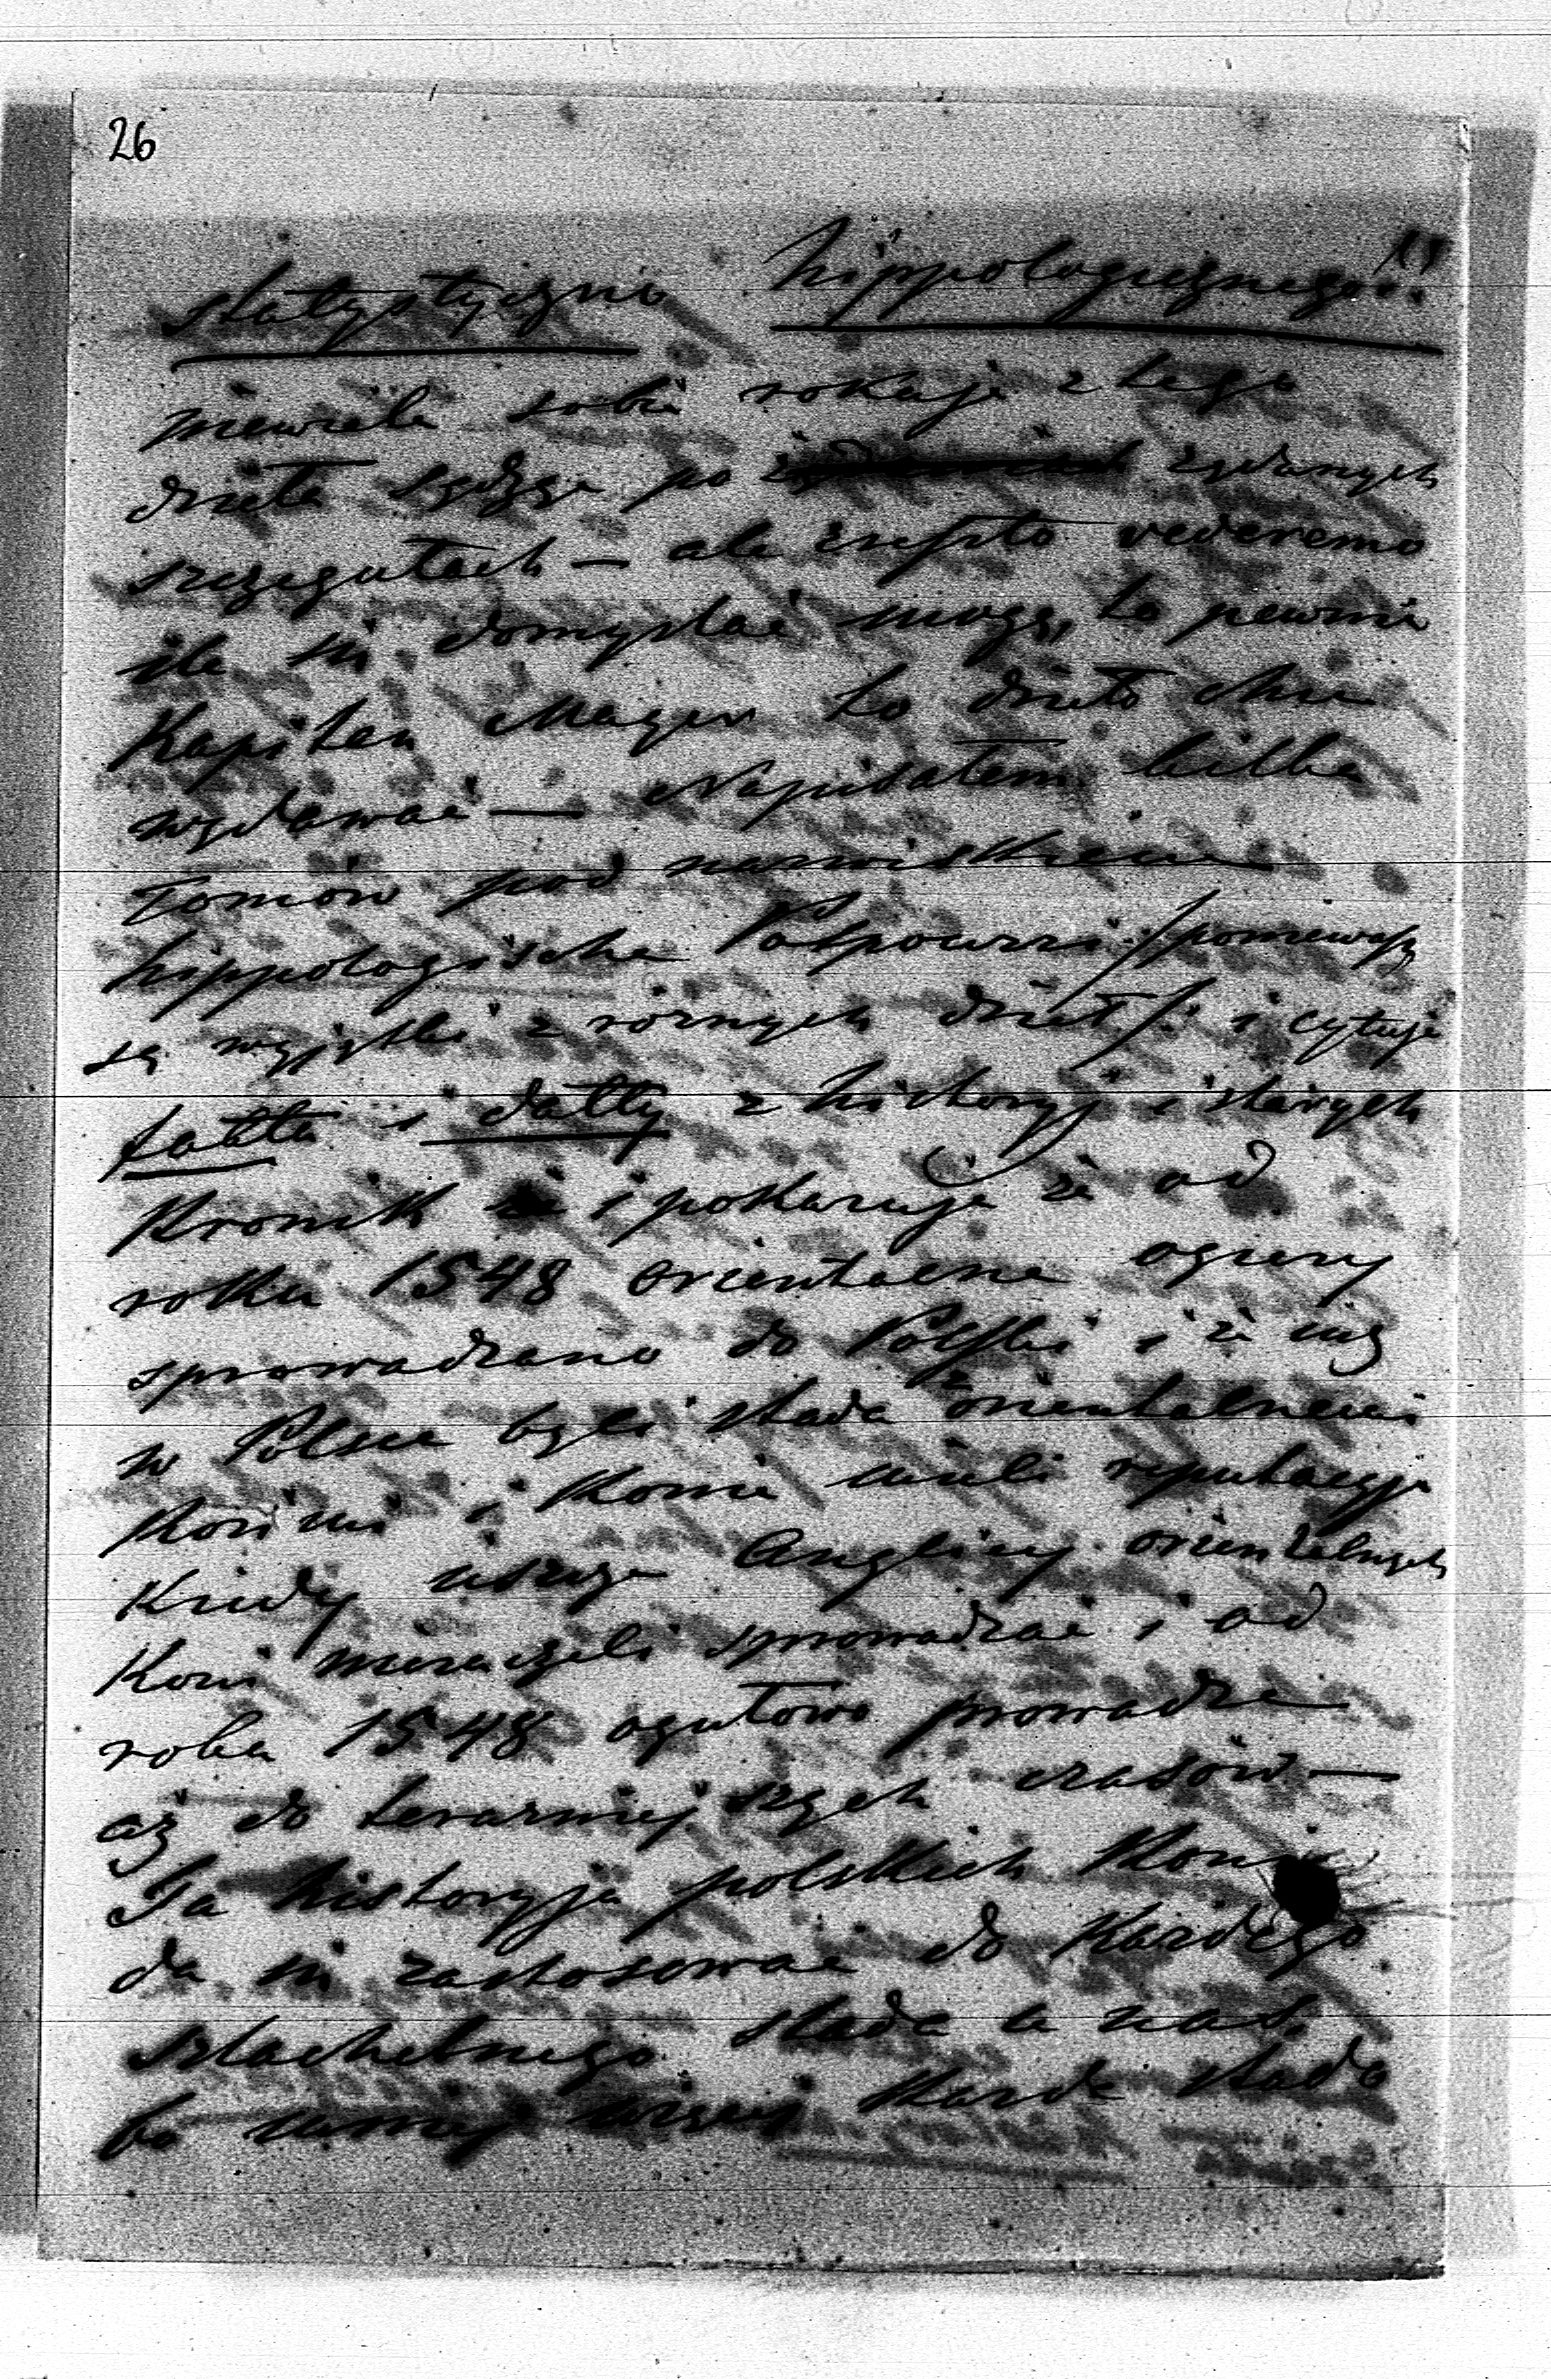 26
statystyczno hippologicznego
niewiele sobie rokuje z tego
dzieła sądząc po żądanych
szczegułach — ale zresztą vederemo
ile się domyslać mogę, to pewnie
Kapitan Mayer to dzieło chce
wydawać — Napisałem kilka
Tomów pod nazwiskiem
hippologische Potpourri /: ponieważ
są wyjątki z rożnych dzieł :/ i cytuje
fakta i datty z historyj i starych
Kronik i pokazuje że od
roku 1548 orientalne ogiery
sprowadzano do Polski i że już
w Polsce byli stada orientalnemi
Końmi i Konie mieli reputacyje
Kiedy jeszcze Anglicy orientalnych
Koni niezaczęli sprowadzać i od
roku 1548 ogułowo prowadze
aż do terazniejszych czasów —
Ta historyja polskich Koni
da się zastosować do Każdego
szlachetnego stada u nas.
bo mniej więcej Każde stado